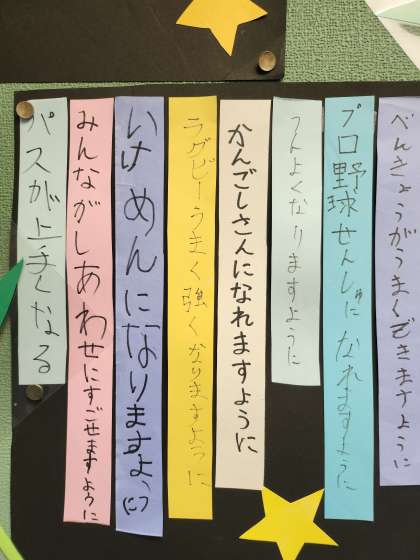 べんきょうがうまくできますように
プロ野球せんしゅになれますように
つよくなりますように
かんごしさんになれますように
ラグビーうまく強くなりますように
いけめんになりますように
みんながしあわせにすごせますように
パスが上手くなる